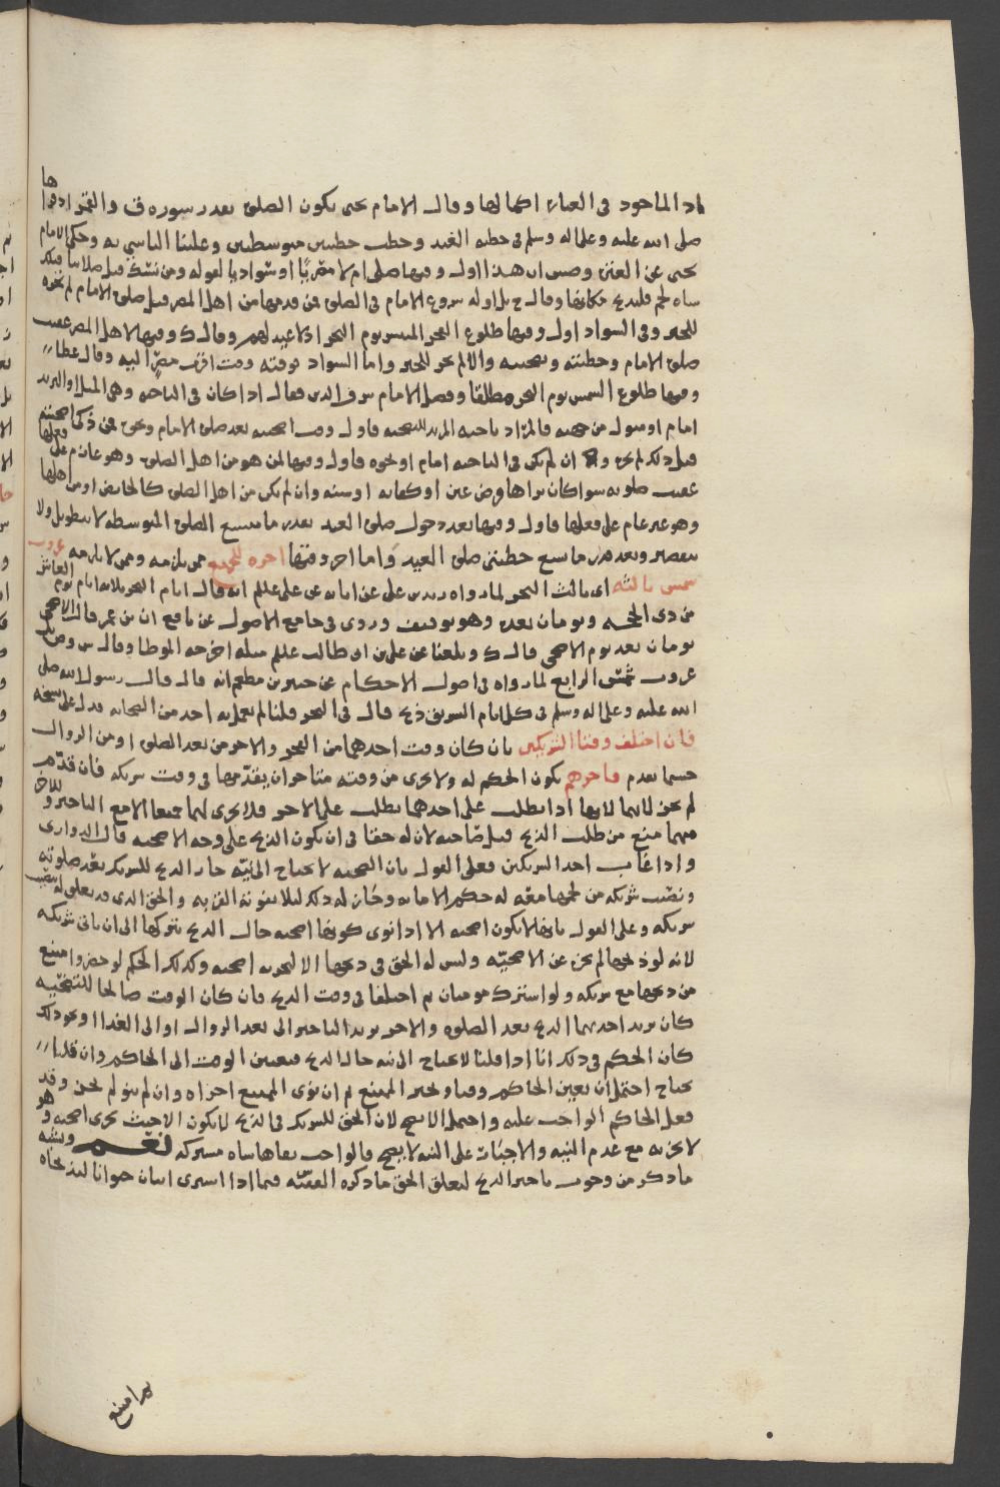 اذ الماخوذ في العبادة اكمالها وقال الامام يحيى يكون الصلوة بعدر سورة ق والقمر اذ قراها
صلى الله عليه وعلى اله وسلم في خطبة العيد وخطب خطبتين متوسطتين وعلينا التاسي به وحكى الامام
يحيى عن العترة و ان هذا اول وقتها صلى ام لا مصريًا او سواديا لقوله ومن نسك قبل صلاتنا فتلك
شاة لحم فليذبح مكانها وقال ح بل اوله شروع الامام في الصلوة فمن قدمها من اهل المصر قبل صلوة الامام لم تجزه
للخبر وفي السواد اول وقتها طلوع الفجر الثاني يوم النحر اذ لا عيد لهم وقال ك وقتها لاهل المصر عقيب
صلوة الامام وخطبته وتضحيته والا لم يجز للخبر واما السواد فوقته وقت اقرب مصرٍ اليه وقال عطاء
وقتها طلوع الشمس يوم النحر مطلقا وفصل الامام شرف الدين فقال اذا كان في الناحية وهي الميل او البريد
امام او متول من جهته فالمراد ناحية المريد للتضحية فاول وقت اضحيته بعد صلوة الامام ونحوه فمن ذكا اضحيته
قبل ذلك لم يجز والا ان لم يكن في الناحية امام او نحوه فاول وقتها لمن هو من اهل الصلوة وهو عازم على فعلها
عقيب صلوته سوا كان يراها فرض عين او كفاية او سنة وان لم يكن من اهل الصلوة كالحائض او من اهلها
وهو غير عازم على فعلها فاول وقتها بعد دخول صلوة العيد بقدر ما يتسع الصلوة المتوسطة لا بتطويل ولا
تقصير وبعد قدر ما يسع خطبتي صلوة العيد واما اخر وقتها اخره للجميع ممن يلزمه وممن لا يلزمه غروب
شمس ثالثه اي ثالث النحر لما رواه زيد بن علي عن ابايه عن علي عليلم انه قال ايام النحر ثلاثة ايام يوم العاشر
من ذي الحجه ويومان بعده وهو توقيف وروى في جامع الاصول عن نافع ان بن عمر قال الاضحى
يومان بعد يوم الاضحى قال ك وبلغنا عن علي بن ابي طالب عليلم مثله اخرجه الموطا وقال ش وص بل
غروب شمس الرابع لما رواه في اصول الاحكام عن جبير بن مطعم انه قال قال رسول الله صلى
الله عليه وعلى اله وسلم في كل ايام التشريق ذبح قال في البحر قلنا لم يعمل به احد من الصحابة فدل على نسخه
فان اختلف وقتا الشريكين بان كان وقت احدهما من الفجر والاخر من بعد الصلوة او من الزوال
حسبما تقدم فاخرهم يكون الحكم له ولا يجزي من وقته متاخر ان يقدمها في وقت شريكه فان قدم
لم يجز لايهما لانها اذا بطلت على احدهما بطلت على الاخر فلا يجزي لهما جميعا الا مع التاخير وللاخر
منهما منع من طلب الذبح قبل صاحبه لان له حقا في ان يكون الذبح على وجه الاضحية قال الدواري
واذا غاب احد الشريكين فعلى القول بان الضحية لا تحتاج الى نية جاز الذبح للشريك بعد صلوته
ونصيب شريكه من لحمها معه له حكم الامانة وجاز له ذلك ليلا تفوته القربة والحق الذي قد تعلق له بنصيب
شريكه وعلى القول بانها لا تكون اضحية الا اذا نوى كونها اضحية حال الذبح يتركها الى ان ياتي شريكه
لانه لو ذبحها لم يجز عن الاضحية وليس له الحق في ذبحها الا لتجزيه اضحية وكذلك الحكم لو حضر وامتنع
من ذبحها مع شريكه ولو اشترك مومنان ثم اختلفا في وقت الذبح فان كان الوقت صالحا للتضحية
كان يريد احدهما الذبح بعد الصلوة والاخر يريد التاخير الى بعد الزوال او الى الغدا او نحو ذلك
كان الحكم في ذلك انا اذا قلنا لا تحتاج الى نية حال الذبح فتعيين الوقت الى الحاكم وان قلنا
تحتاج احتمل ان يعين الحاكم وقتا ويجبر الممتنع ثم ان نوى الممتنع اجزاه وان لم ينو لم تجز وقد
فعل الحاكم الواجب عليه واحتمل الا يصح لان الحق للشريك في الذبح لا يكون الا حيث تجزي اضحية وهو
لا تجزيه مع عدم النية والاجبار على النية لا يصح فالواجب بقاها شاة مشتركة نعم ويشبه
ما ذكر من وجوب تاخير الذبح لتعلق الحق ما ذكره الفقيه فيما اذا اشترى اثنان حيوانا ليذبحاه
ثم امتنع